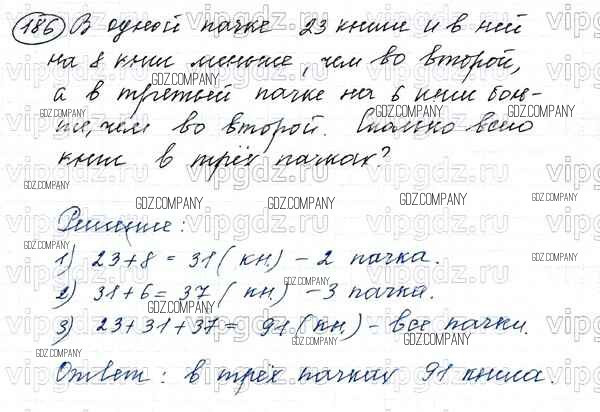 186 В одной пачке 23 книги и в ней
на 8 книг меньше, чем во второй,
а в третьей пачке на 6 книг боль-
ше, чем во второй. Сколько всего
книг в трёх пачках?
Решение:
1) 23+8=31 (кн.) – 2 пачка.
2) 31+6=37 (кн.) – 3 пачка.
3) 23+31+37= 91 (кн.) – все пачки.
Ответ: в трёх пачках 91 книга.
vipgdz.ru
GDZ.COMPANY